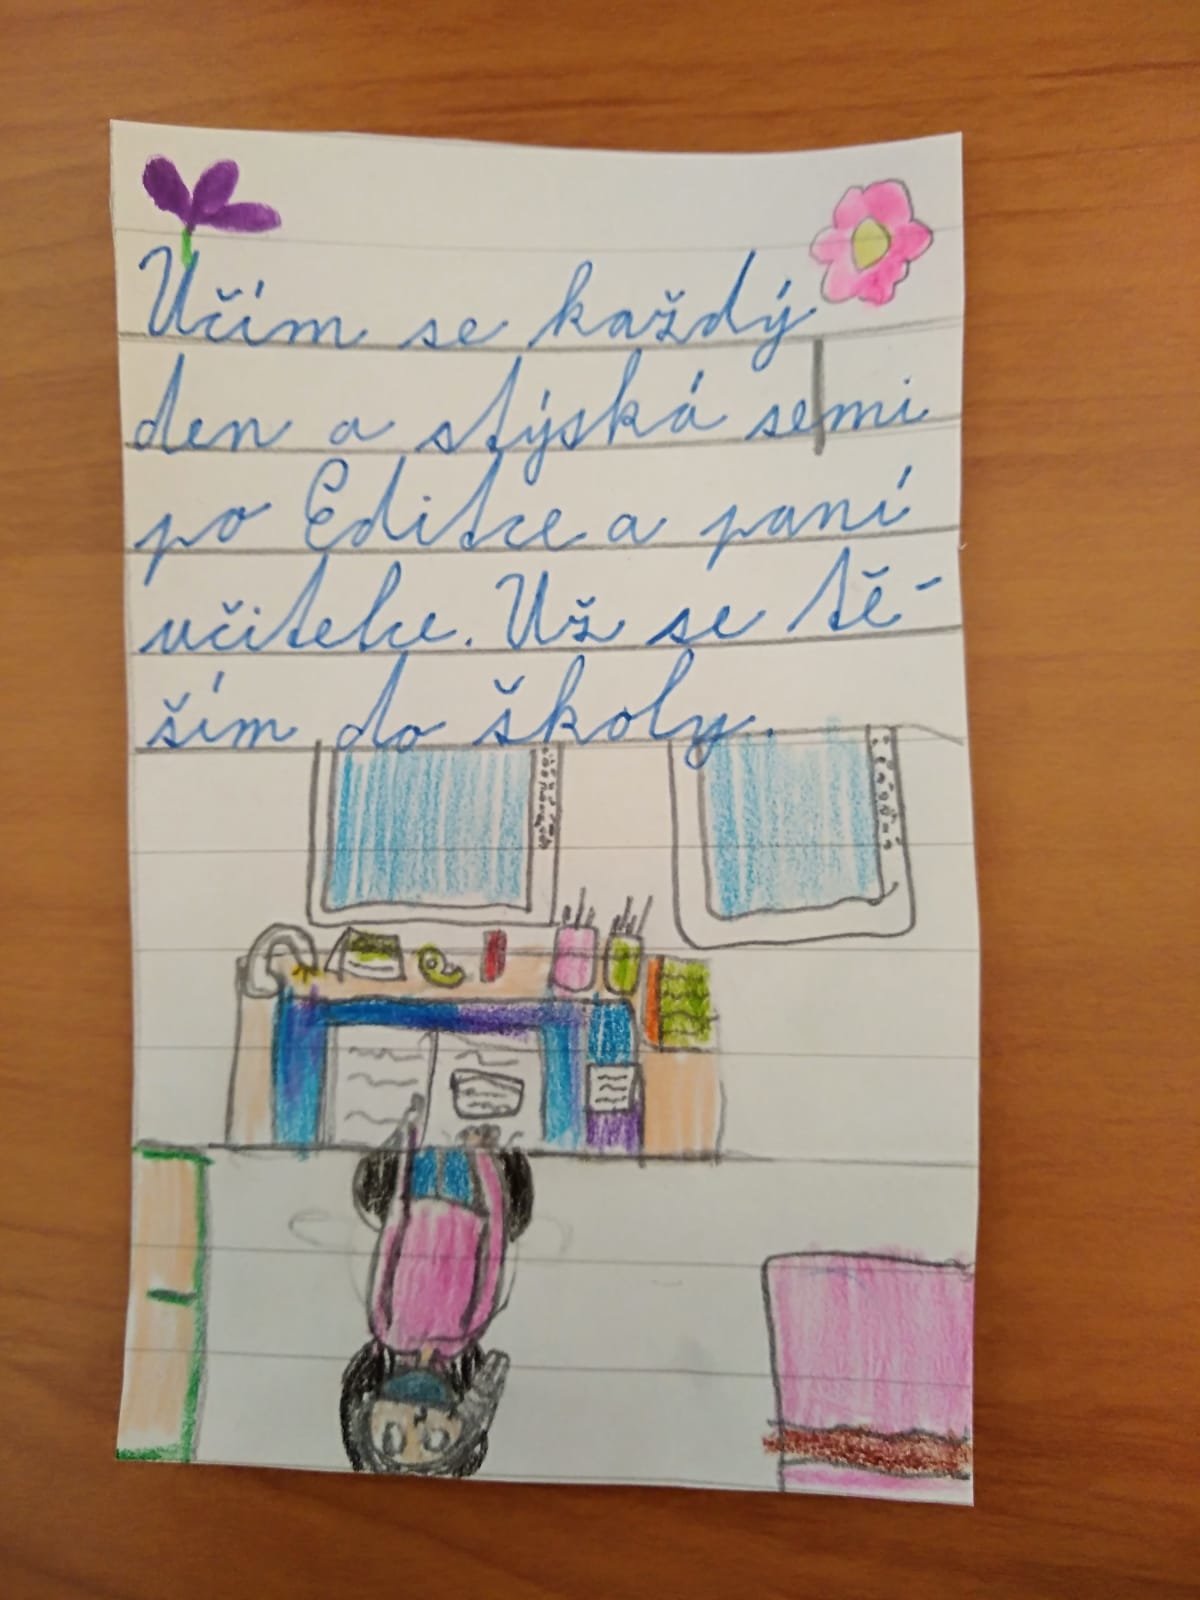 Učím se každý
den a stýská se|mi
po Editce a paní
učitelce. Už se tě-
ším do školy.